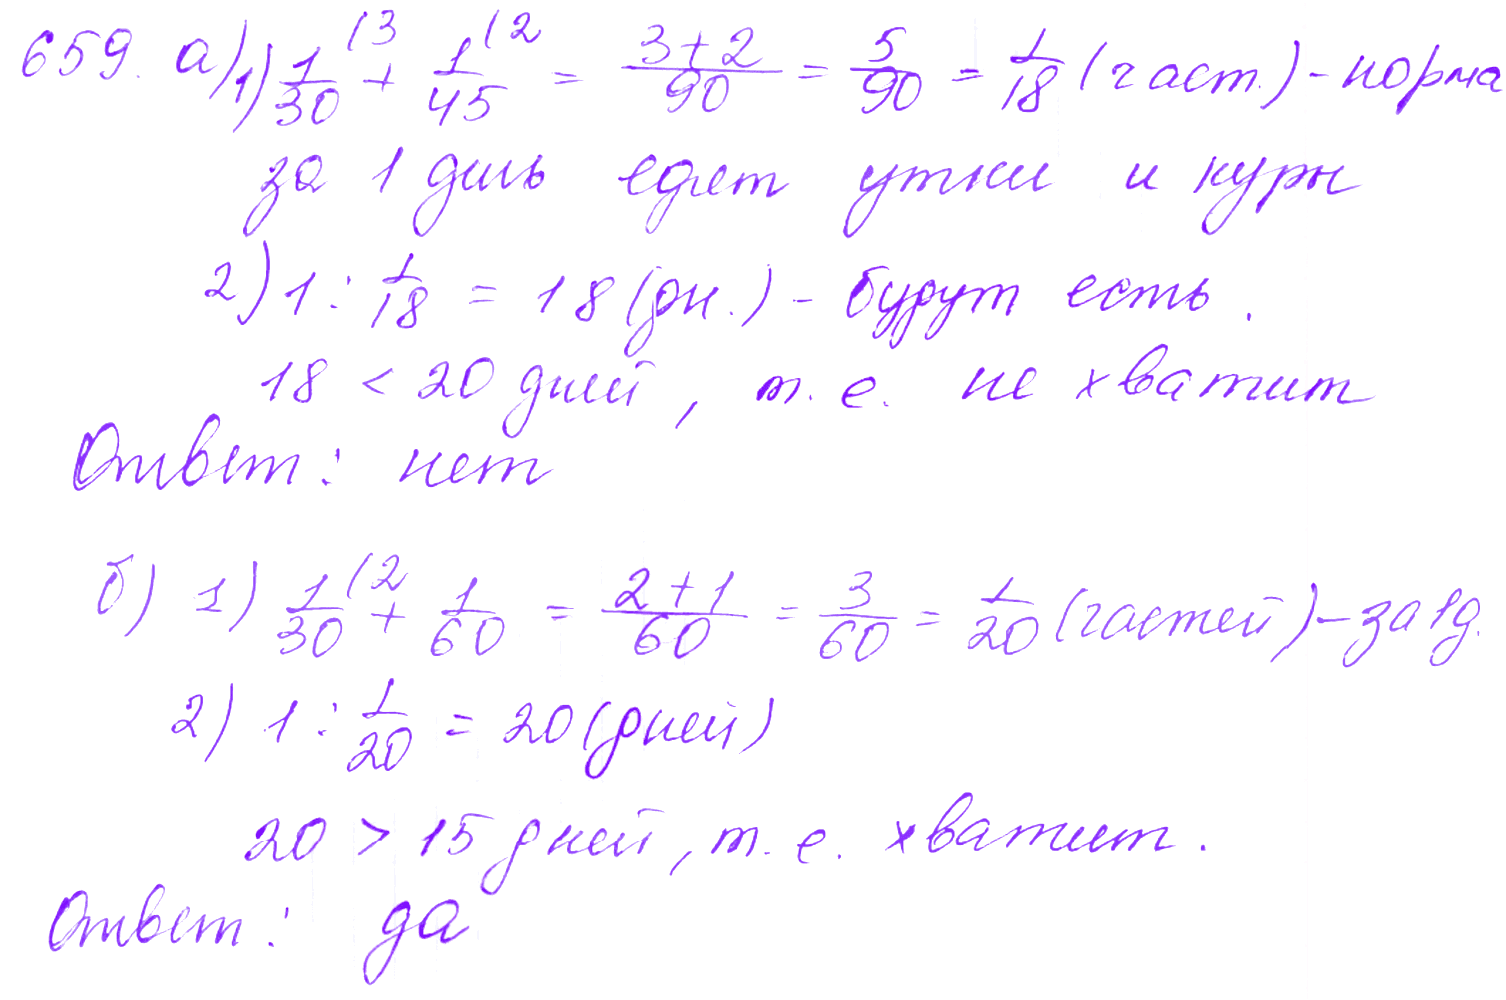 659. а) 1) 1/30 (3 + 1/45 (2 = 3+2/90 = 5/90 = 1/18 (част.) - норма
за 1 день едят утки и куры
2) 1 : 1/18 = 18 (дн.) - будут есть.
18 < 20 дней, т. е. не хватит
Ответ: нет
б) 1) 1/30 (2 + 1/60 = 2+1/60 = 3/60 = 1/20 (частей) - за 1д.
2) 1 : 1/20 = 20 (дней)
20 > 15 дней, т. е. хватит.
Ответ: да